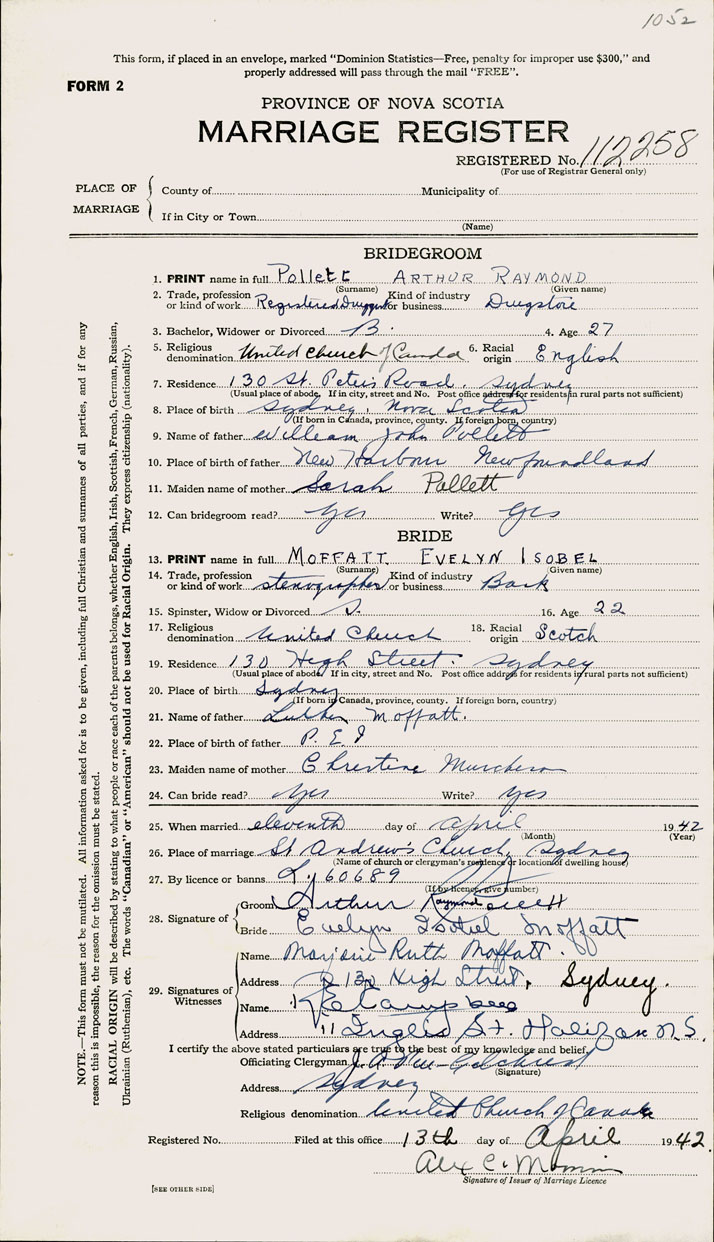 1052
This form, if placed in an envelope, marked "Dominion Statistics—Free, penalty for improper use $300," and
properly addressed will pass through the mail "FREE".
FORM 2
PROVINCE OF NOVA SCOTIA
MARRIAGE REGISTER
REGISTERED No. 112258
(For use of Registrar General only)
PLACE OF MARRIAGE
County of Municipality of
If in City or Town
(Name)
BRIDEGROOM
1. PRINT name in full Pollett ARTHUR RAYMOND
(Surname) (Given name)
2. Trade, profession or kind of work Registered Druggist Kind of industry or business Drugstore
3. Bachelor, Widower or Divorced B. 4. Age 27
5. Religious denomination United Church of Canada 6. Racial origin English
7. Residence 130 St. Peters Road, Sydney
(Usual place of abode. If in city, street and No. Post office address for residents in rural parts not sufficient)
8. Place of birth Sydney, Nova Scotia
(If born in Canada, province, county. If foreign born, country)
9. Name of father William John Pollett
10. Place of birth of father New Harbour Newfoundland
11. Maiden name of mother Sarah Pollett
12. Can bridegroom read? Yes Write? Yes
BRIDE
13. PRINT name in full MOFFATT EVELYN ISOBEL
(Surname) (Given name)
14. Trade, profession or kind of work stenographer Kind of industry or business Bank
15. Spinster, Widow or Divorced S. 16. Age 22
17. Religious denomination United Church 18. Racial origin Scotch
19. Residence 130 High Street. Sydney
(Usual place of abode. If in city, street and No. Post office address for residents in rural parts not sufficient)
20. Place of birth Sydney
(If born in Canada, province, county. If foreign born, country)
21. Name of father Luther Moffatt.
22. Place of birth of father P.E.I
23. Maiden name of mother Christine Murchison
24. Can bride read? Yes Write? Yes
25. When married eleventh day of April 1942
(Month) (Year)
26. Place of marriage St Andrew's Church, Sydney
(Name of church or clergyman's residence or location of dwelling house)
27. By licence or banns L. 60689
(If by licence, give number)
28. Signature of
Groom Arthur Raymond Pollett
Bride Evelyn Isobel Moffatt
29. Signatures of Witnesses
Name Marjorie Ruth Moffatt.
Address 130 High Street, Sydney.
Name Campbell
Address 11 Inglis St. Halifax N.S.
I certify the above stated particulars are true to the best of my knowledge and belief.
Officiating Clergyman
(Signature)
Address Sydney
Religious denomination United Church of Canada
Registered No. Filed at this office 13th day of April 1942.
Alex C.
Signature of Issuer of Marriage Licence
[SEE OTHER SIDE]
NOTE.—This form must not be mutilated. All information asked for is to be given, including full Christian and surnames of all parties, and if for any
reason this is impossible, the reason for the omission must be stated.
RACIAL ORIGIN will be described by stating to what people or race each of the parents belongs, whether English, Irish, Scottish, French, German, Russian,
Ukrainian (Ruthenian), etc. The words "Canadian" or "American" should not be used for Racial Origin. They express citizenship (nationality).